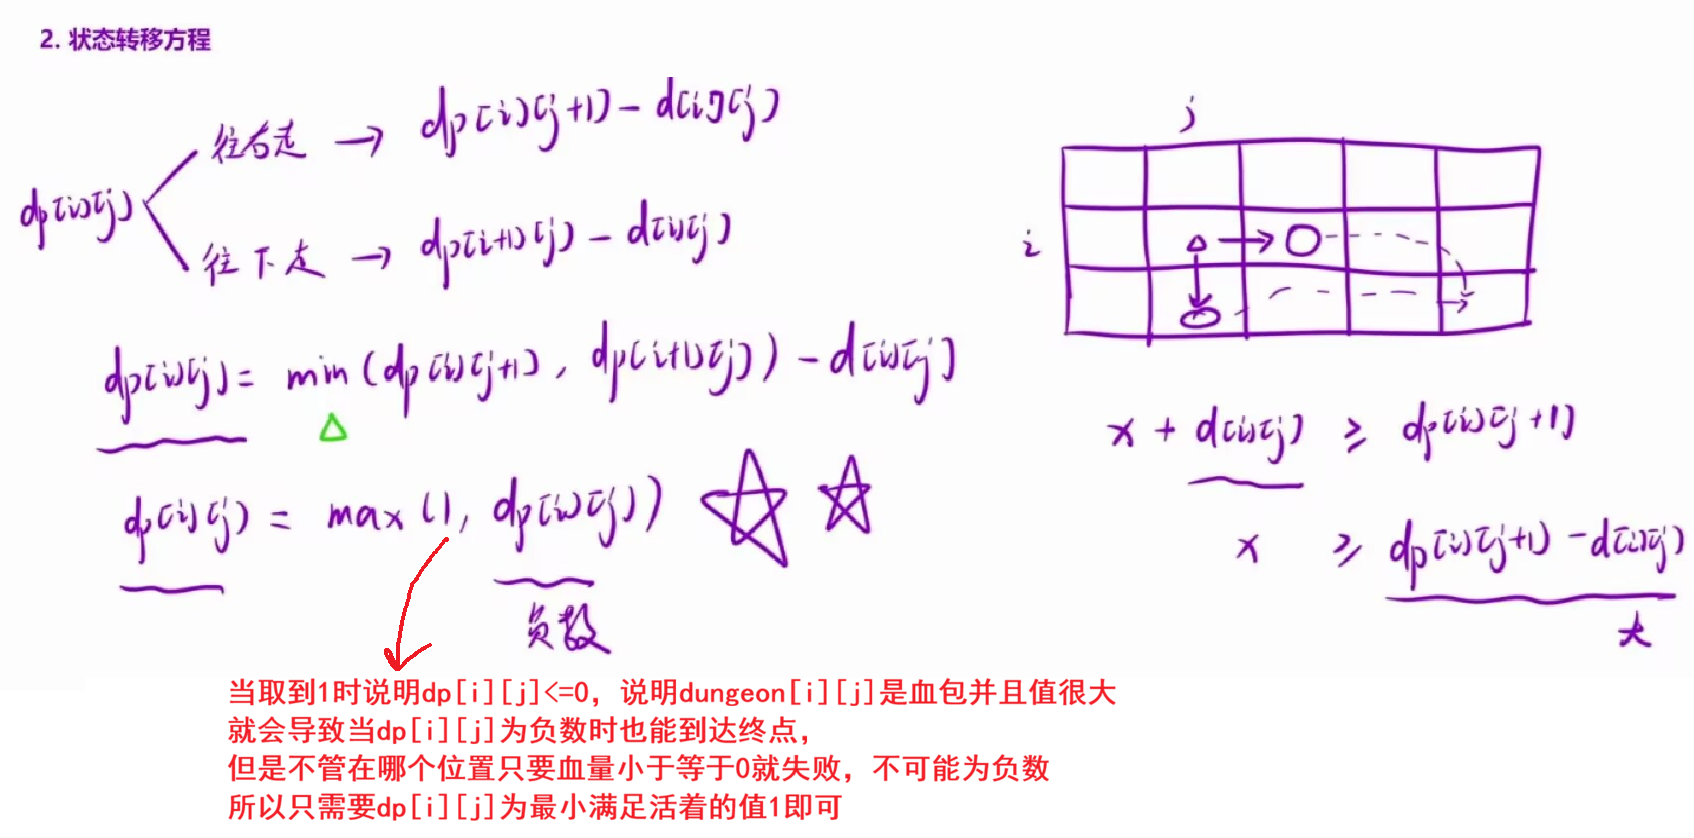 2. 状态转移方程
dp[i][j]
往右走 → dp[i][j+1] - d[i][j]
往下走 → dp[i+1][j] - d[i][j]
dp[i][j] = min(dp[i][j+1], dp[i+1][j]) - d[i][j]
dp[i][j] = max(1, dp[i][j])
负数
j
i
x + d[i][j] ≥ dp[i][j+1]
x ≥ dp[i][j+1] - d[i][j]
大
当取到1时说明dp[i][j]<=0，说明dungeon[i][j]是血包并且值很大
就会导致当dp[i][j]为负数时也能到达终点，
但是不管在哪个位置只要血量小于等于0就失败，不可能为负数
所以只需要dp[i][j]为最小满足活着的值1即可